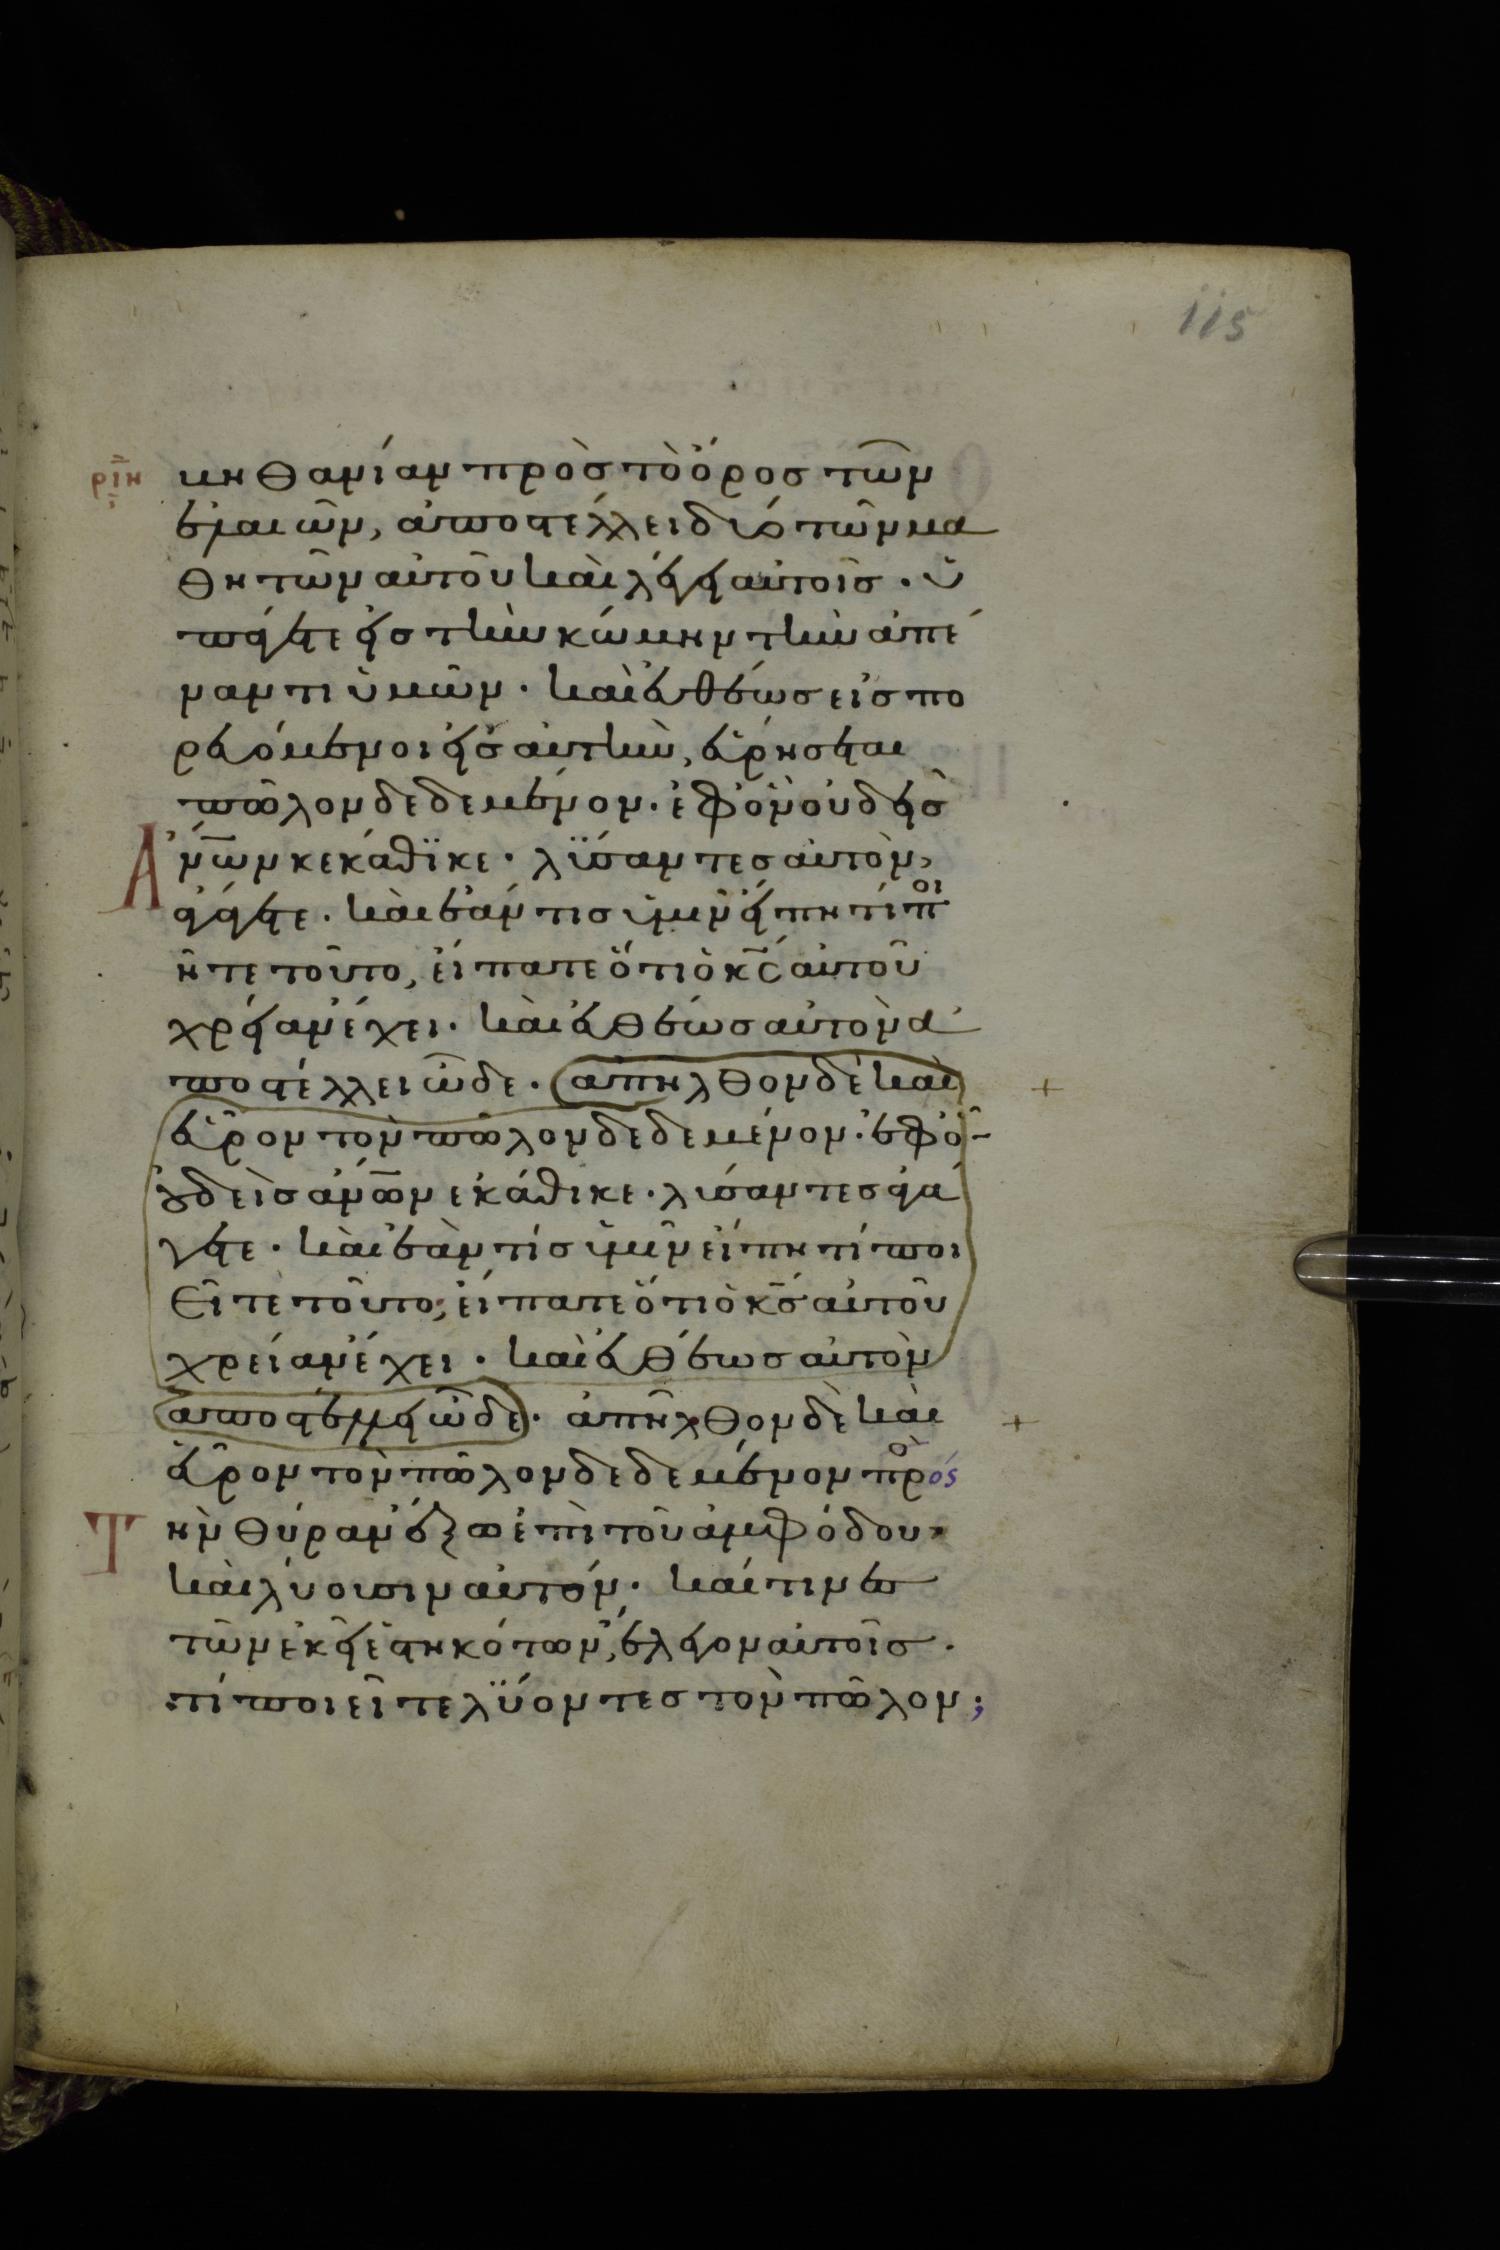 115
ριη κηθανίαν πρὸς τὸ ὄρος τῶν
ἐλαιῶν, ἀποστέλλει δύο τῶν μα
θητῶν αὐτοῦ καὶ λέγει αὐτοῖς · ὑ
πάγετε εἰς τὴν κώμην τὴν ἀπέ
ναντι ὑμῶν · καὶ εὐθέως εἰσπο
ρευόμενοι εἰς αὐτὴν, εὑρήσεται
πῶλον δεδεμένον · ἐφ ὃν οὐδεὶς
ἀνῶν κεκάθϊκε · λϊσαντες αὐτὸν,
Ἀγάγετε · καὶ ἐάν τις ὑμῖν εἴπη τί ποι
ῆτε τοῦτο, εἴπατε ὅτι ὁ κς αὐτοῦ
χρείαν ἔχει · καὶ εὐθέως αὐτὸν ἀ
ποστέλλει ὧδε · ἀπῆλθον δὲ καὶ +
εὗρον τὸν πῶλον δεδεμένον · ἐφ ὃ
οὐδεὶς ἀνῶν ἐκάθικε · λύσαντες ἀγά
γετε · καὶ ἐὰν τίς ὑμῖν εἴπη τί ποι
εῖτε τοῦτο, εἴπατε ὅτι ὁ κς αὐτοῦ
χρείαν ἔχει · καὶ εὐθέως αὐτὸν
ἀποστέλλει ὧδε · ἀπῆλθον δὲ καὶ +
εὗρον τὸν πῶλον δεδεμένον πρός
Τὴν θύραν ἔξω ἐπὶ τοῦ ἀμφόδου ·
καὶ λύουσιν αὐτόν · καί τινες
τῶν ἐκεῖ ἑστηκότων, ἔλεγον αὐτοῖς ·
τί ποιεῖτε λϋοντες τὸν πῶλον ;